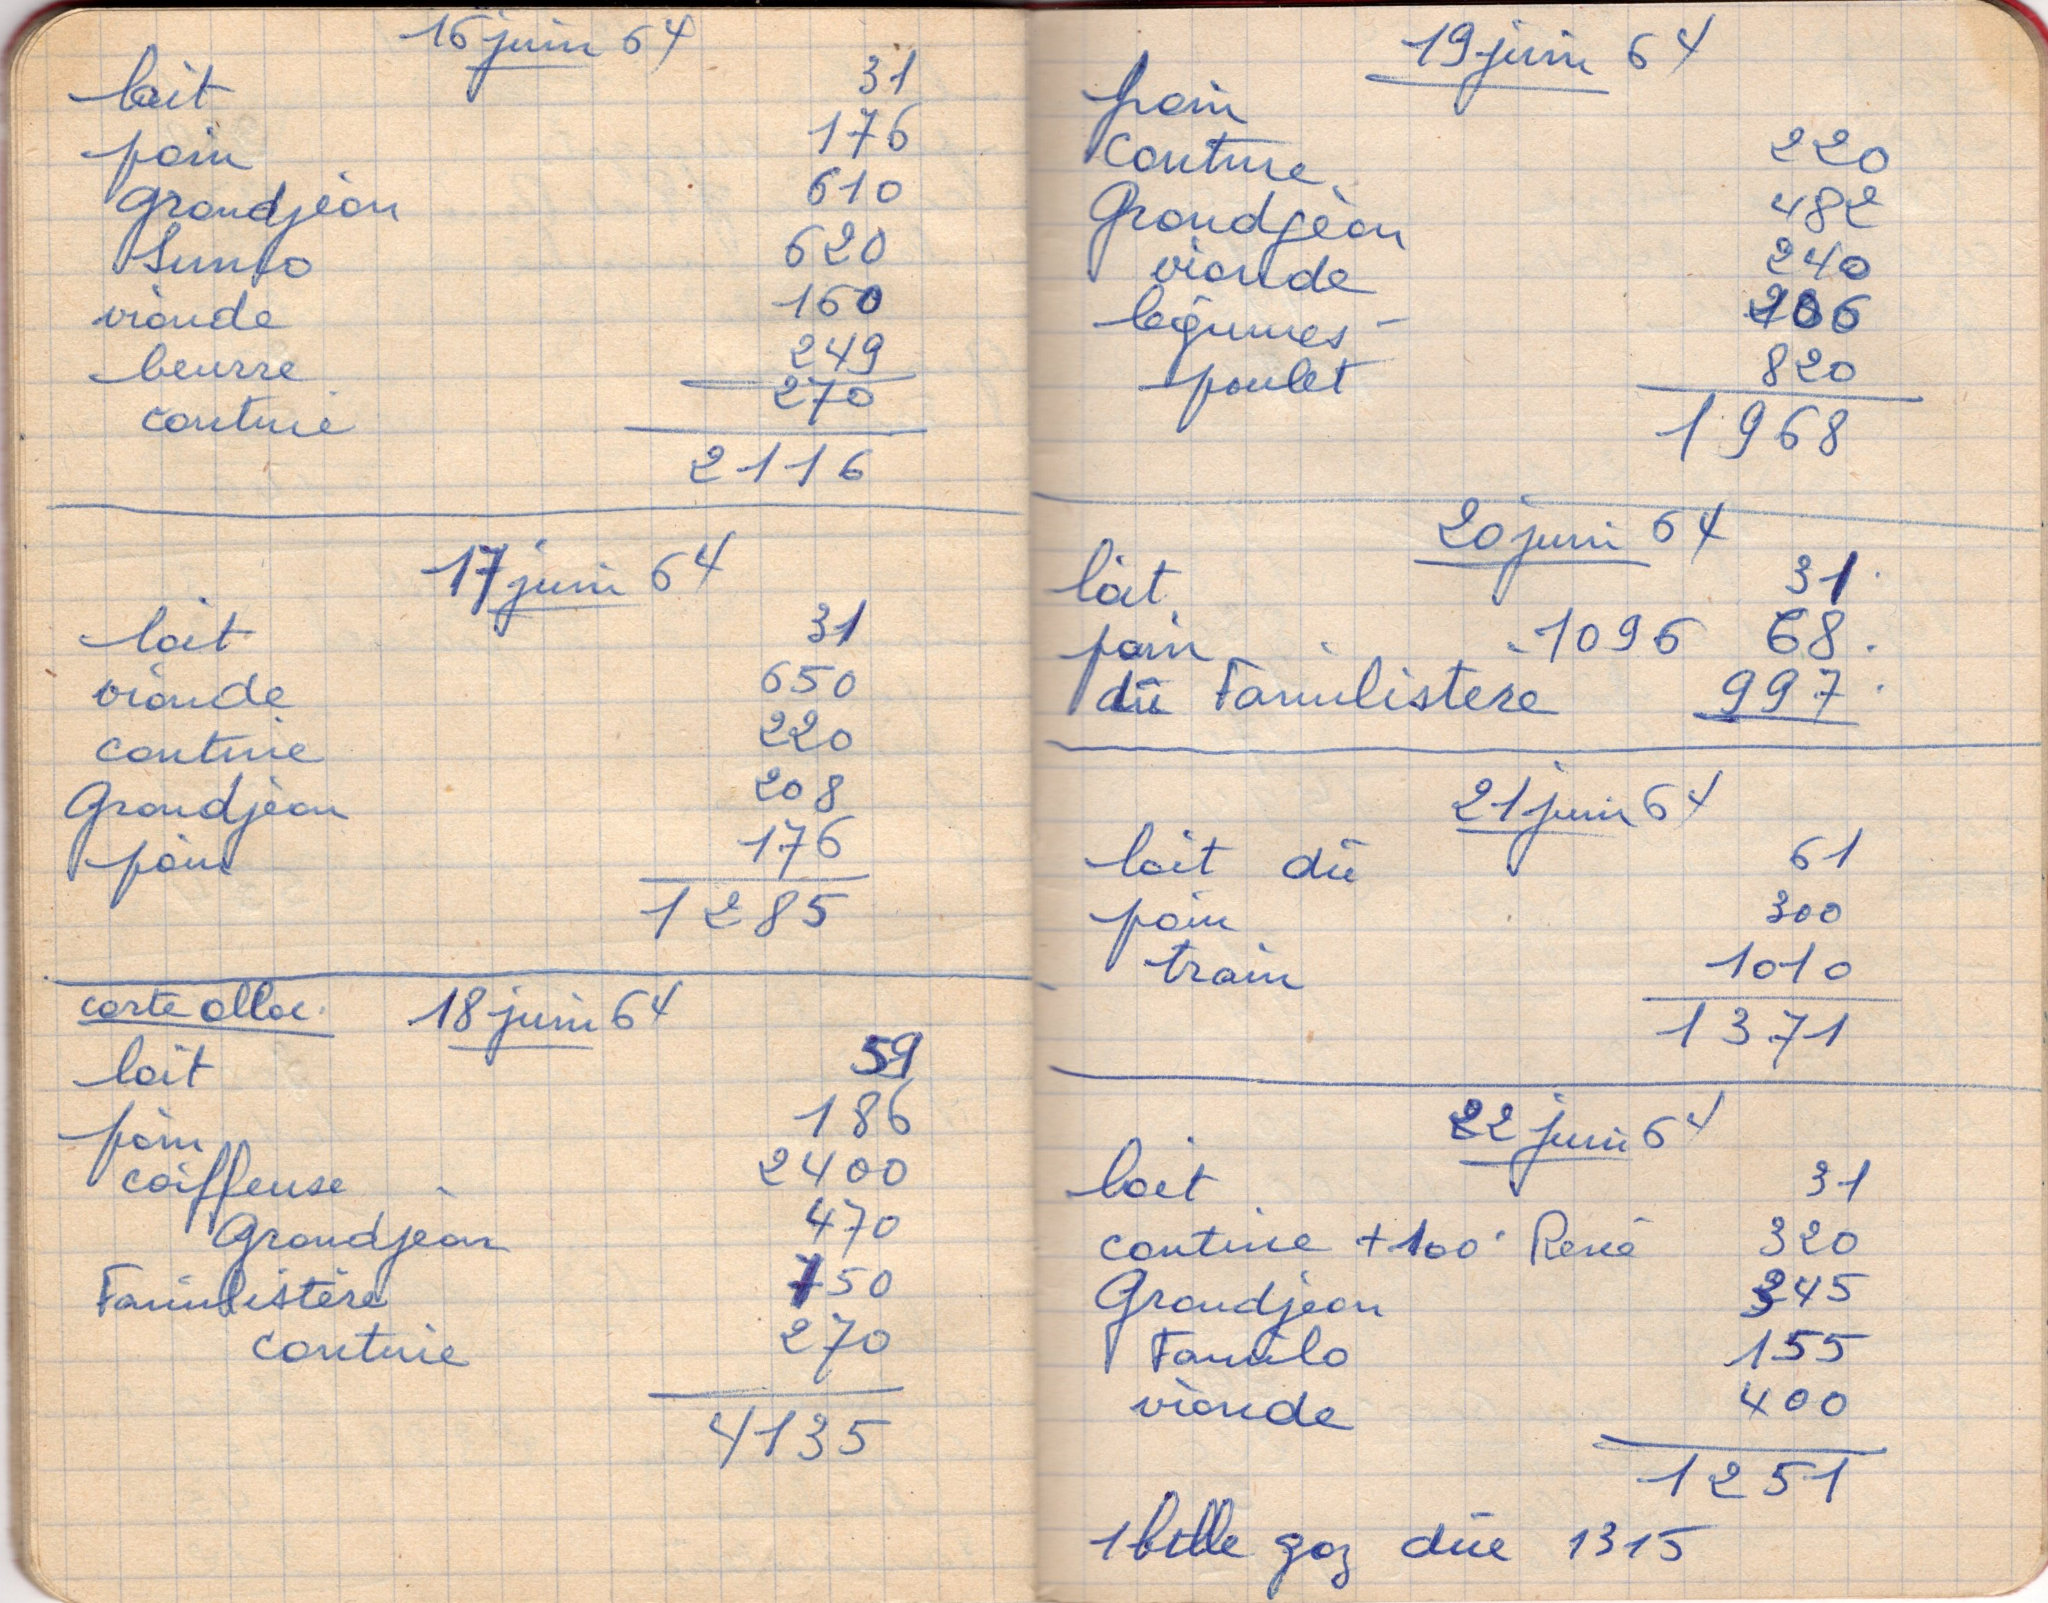 16 juin 64
lait 31
pain 176
Grandjean 610
620
viande 160
beurre 249
cantine 270
2116
17 juin 64
lait 31
viande 650
cantine 220
Grandjean 208
pain 176
1285
carte alloc. 18 juin 64
lait 59
pain 186
coiffeuse 2400
Grandjean 470
Familistère 750
cantine 270
4135
19 juin 64
pain
Cantine 220
Grandjean 482
viande 240
légumes 206
poulet 820
1968
20 juin 64
lait 31
pain 1096 68
dû Familistere 997
21 juin 64
lait dû 61
pain 300
train 1010
1371
22 juin 64
lait 31
cantine + 100 René 320
Grandjean 345
Familo 155
viande 400
1251
1 btlle gaz dûe 1315